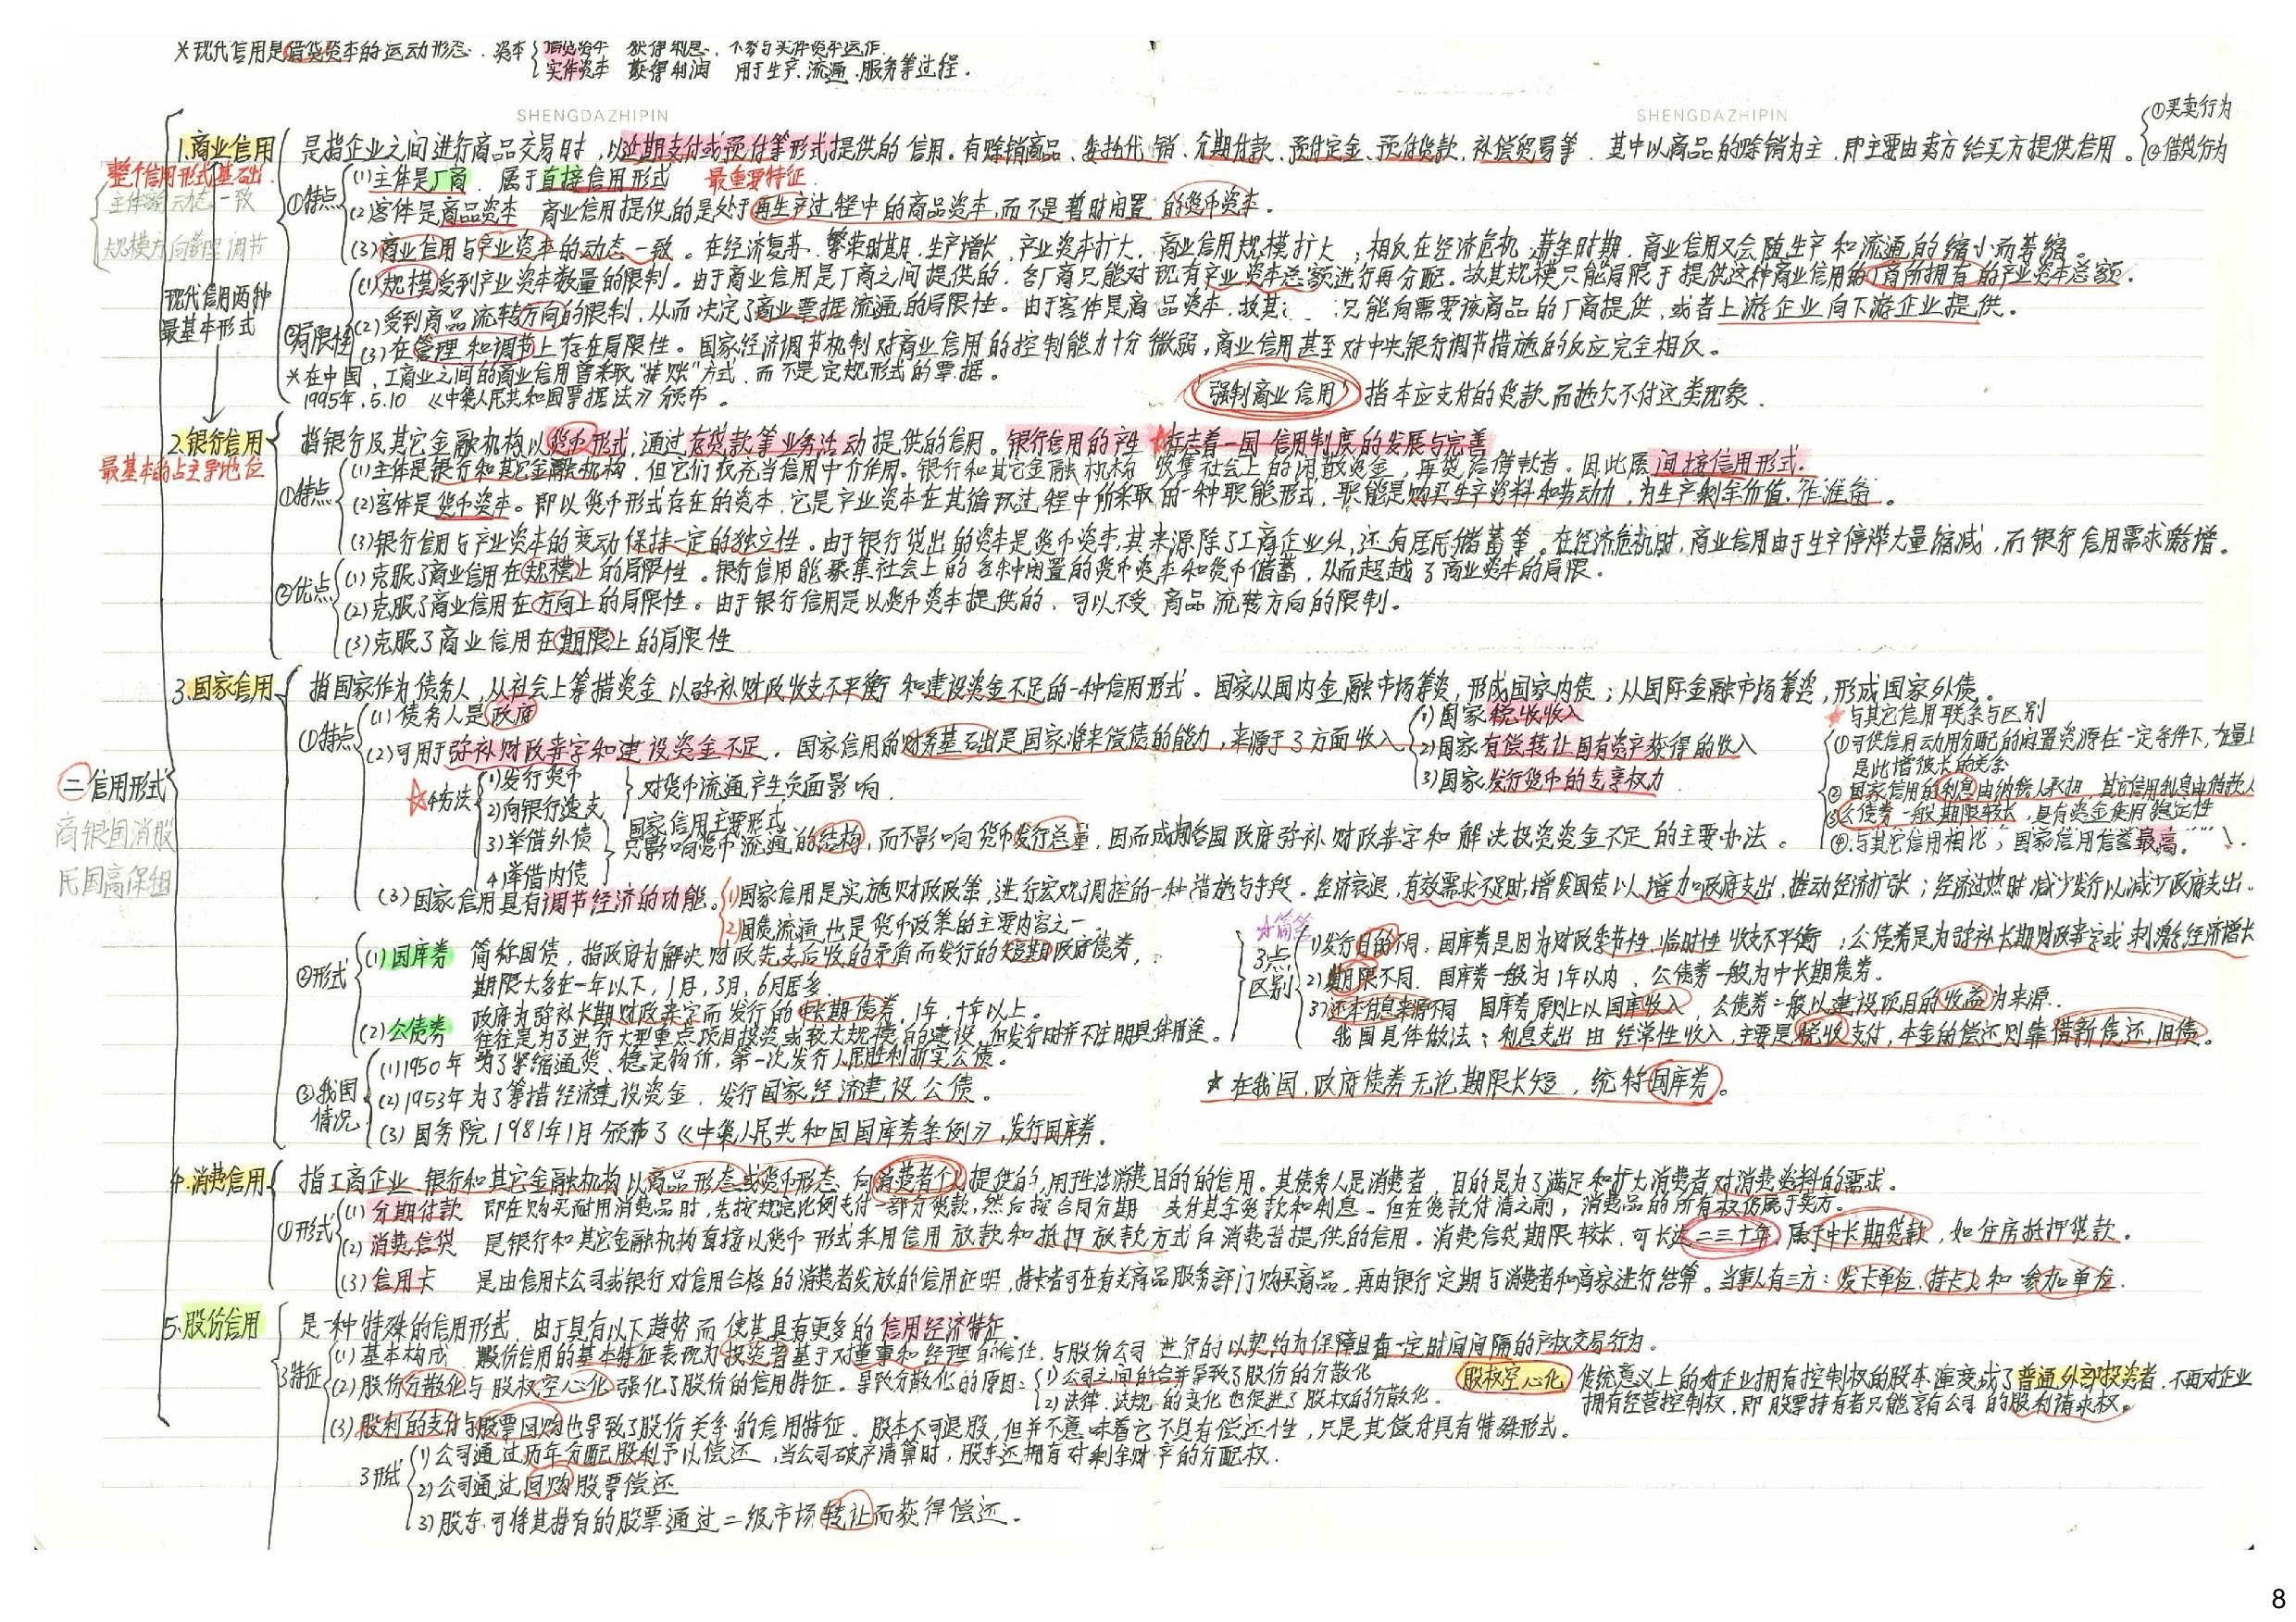 ※现代信用是借贷资本的运动形态. 资本 借贷资本 获得利息, 不参与实体资本运作.
实体资本 获得利润 用于生产.流通.服务等过程.
SHENGDAZHIPIN SHENGDAZHIPIN
①买卖行为
②借贷行为
1.商业信用 是指企业之间进行商品交易时,以延期支付或预付等形式提供的信用。有赊销商品、委托代销、分期付款、预付定金、预付货款、补偿贸易等. 其中以商品的赊销为主,即主要由卖方给买方提供信用。
整个信用形式基础.
①特点
(1)主体是厂商. 属于直接信用形式 最重要特征.
(2)客体是商品资本 商业信用提供的是处于再生产过程中的商品资本,而不是暂时闲置的货币资本。
主体客动态一致
规模方向管理调节
(3)商业信用与产业资本的动态一致。在经济复苏、繁荣时期,生产增长,产业资本扩大,商业信用规模扩大;相反在经济危机.萧条时期,商业信用又会随生产和流通的缩小而萎缩。
现代信用两种
最基本形式
②局限性
(1)规模受到产业资本数量的限制。由于商业信用是厂商之间提供的.各厂商只能对现有产业资本总额进行再分配。故其规模只能局限于提供这种商业信用的厂商所拥有的产业资本总额.
(2)受到商品流转方向的限制,从而决定了商业票据流通的局限性。由于客体是商品资本,故其 只能向需要该商品的厂商提供,或者上游企业向下游企业提供。
(3)在管理和调节上存在局限性。国家经济调节机制对商业信用的控制能力十分微弱,商业信用甚至对中央银行调节措施的反应完全相反。
※在中国,工商业之间的商业信用曾采取“挂账”方式,而不是定规形式的票据。
1995年.5.10 《中华人民共和国票据法》颁布。
强制商业信用 指本应支付的货款而拖欠不付这类现象.
2.银行信用 指银行及其它金融机构以货币形式,通过存贷款等业务活动提供的信用。银行信用的产生★标志着一国信用制度的发展与完善
最基本的占主导地位
①特点
(1)主体是银行和其它金融机构,但它们仅充当信用中介作用。银行和其它金融机构 收集社会上的闲散资金,再贷给借款者。因此属间接信用形式.
(2)客体是货币资本。即以货币形式存在的资本,它是产业资本在其循环过程中所采取的一种职能形式,职能是购买生产资料和劳动力,为生产剩余价值作准备。
(3)银行信用与产业资本的变动保持一定的独立性。由于银行贷出的资本是货币资本,其来源除了工商企业外,还有居民储蓄等。在经济危机时,商业信用由于生产停滞大量缩减,而银行信用需求激增。
②优点
(1)克服了商业信用在规模上的局限性。银行信用能聚集社会上的各种闲置的货币资本和货币储蓄,从而超越了商业资本的局限.
(2)克服了商业信用在方向上的局限性。由于银行信用是以货币资本提供的,可以不受商品流转方向的限制.
(3)克服了商业信用在期限上的局限性
3.国家信用 指国家作为债务人,从社会上筹措资金以弥补财政收支不平衡和建设资金不足的一种信用形式。国家从国内金融市场筹资,形成国家内债;从国际金融市场筹资,形成国家外债。
①特点
(1)债务人是政府
(2)可用于弥补财政赤字和建设资金不足。国家信用的财务基石出是国家将来偿债的能力,来源于3方面收入
1)国家税收收入
2)国家有偿转让国有资产获得的收入
3)国家发行货币的专享权力
★与其它信用联系与区别
①可供信用动用分配的闲置资源在一定条件下,在量上
是此增彼长的关系
②国家信用的利息由纳税人承担,其它信用利息由借款人
③公债券一般期限较长,具有资金使用稳定性
④与其它信用相比,国家信用信誉最高.
☆4方法
1)发行货币
2)向银行透支
对货币流通产生负面影响.
3)举借外债
4)举借内债
国家信用主要形式
只影响货币流通的结构,而不影响货币发行总量,因而成为各国政府弥补财政赤字和解决投资资金不足的主要办法。
二信用形式
商银国消股
民国高保租
(3)国家信用具有调节经济的功能。
1)国家信用是实施财政政策,进行宏观调控的一种措施与手段。经济衰退,有效需求不足时,增发国债以增加政府支出,推动经济扩张;经济过热时减少发行以减少政府支出。
2)国债流通也是货币政策的主要内容之一.
②形式
(1)国库券 简称国债,指政府为解决财政先支后收的矛盾而发行的短期政府债券,
期限大多在一年以下,1月,3月,6月居多.
(2)公债券 政府为弥补长期财政赤字而发行的中长期债券.1年,十年以上。
往往是为了进行大型重点项目投资或较大规模的建设,但发行时并不注明具体用途。
☆简答
3点
区别
1)发行目的不同.国库券是因为财政季节性.临时性收支不平衡;公债券是为弥补长期财政赤字或刺激经济增长
2)期限不同.国库券一般为1年以内,公债券一般为中长期债券。
3)还本付息来源不同 国库券原则上以国库收入,公债券一般以建设项目的收益为来源.
我国具体做法:利息支出由经常性收入,主要是税收支付,本金的偿还则靠借新债还旧债。
③我国
情况
(1)1950年 为了紧缩通货、稳定物价,第一次发行人民胜利折实公债。
(2)1953年为了筹措经济建设资金,发行国家经济建设公债。
(3)国务院1981年1月颁布了《中华人民共和国国库券条例》,发行国库券.
★在我国,政府债券无论期限长短,统称国库券。
4.消费信用 指工商企业、银行和其它金融机构以商品形态或货币形态,向消费者个人提供的,用于生活消费目的的信用。其债务人是消费者,目的是为了满足和扩大消费者对消费资料的需求。
①形式
(1)分期付款 即在购买耐用消费品时,先按规定比例支付一部分货款,然后按合同分期 支付其余货款和利息。但在货款付清之前,消费品的所有权仍属于卖方。
(2)消费信贷 是银行和其它金融机构直接以货币形式采用信用放款和抵押放款方式向消费者提供的信用。消费信贷期限较长,可长达二三十年,属于中长期贷款,如住房抵押贷款。
(3)信用卡 是由信用卡公司或银行对信用合格的消费者发放的信用证明,持卡者可在有关商品服务部门购买商品,再由银行定期与消费者和商家进行结算。当事人有三方:发卡单位.持卡人和参加单位.
5.股份信用 是一种特殊的信用形式,由于具有以下趋势而使其具有更多的信用经济特征.
3特征
(1)基本构成 股份信用的基本特征表现为投资者基于对董事和经理的信任,与股份公司进行的以契约为保障且有一定时间间隔的产权交易行为。
(2)股份分散化与股权空心化强化了股份的信用特征。导致分散化的原因:
1)公司之间的合并导致了股份的分散化
2)法律、法规的变化也促进了股权的分散化.
股权空心化 传统意义上的对企业拥有控制权的股本演变成了普通外部投资者,不再对企业
拥有经营控制权,即股票持有者只能享有公司的股利请求权。
(3)股利的支付与股票回购也导致了股份关系的信用特征. 股本不可退股,但并不意味着它不具有偿还个性,只是其偿付具有特殊形式。
3形式
1)公司通过历年分配股利予以偿还,当公司破产清算时,股东还拥有对剩余财产的分配权.
2)公司通过回购股票偿还
3)股东可将其持有的股票通过二级市场转让而获得偿还.
8